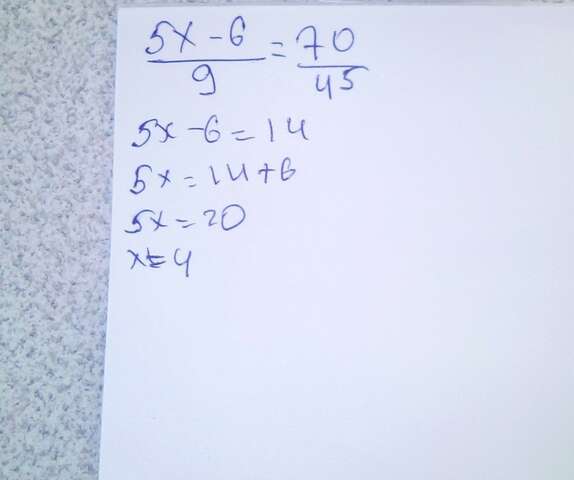 5x-6/9 = 70/45
5x-6=14
5x=14+6
5x=20
x=4